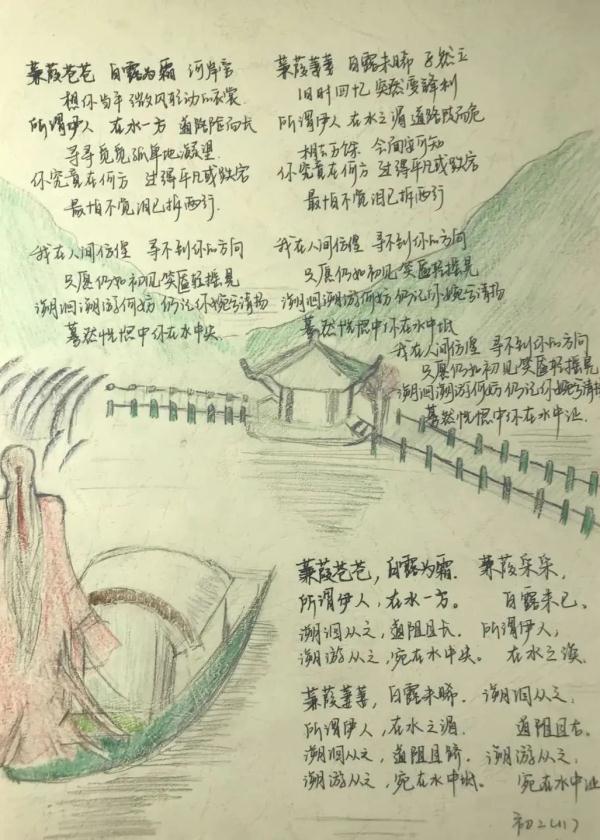 蒹葭苍苍 白露为霜 河岸宫
想你当年 微风彤动的衣裳
所谓伊人 在水一方 道路阻而长
寻寻觅觅孤单地凝望
你究竟在何方 过得平凡或跌宕
最怕不觉泪已拆两行
我在人间彷徨 寻不到你的方向
只愿仍如初见 笑靥轻摇晃
溯洄溯游何妨 仍记你婉兮清扬
蓦然恍惚中你在水中央
蒹葭萋萋 白露未晞 孑然立
旧时回忆 突然变锋利
所谓伊人 在水之湄 道路险而危
你究竟在何方 过得平凡或跌宕
最怕不觉泪已拆两行
我在人间彷徨 寻不到你的方向
只愿仍如初见 笑靥轻摇晃
溯洄溯游何妨 仍记你婉兮清扬
蓦然恍惚中你在水中坻
我在人间彷徨 寻不到你的方向
只愿仍如初见 笑靥轻摇晃
溯洄溯游何妨 仍记你婉兮清扬
蓦然恍惚中你在水中沚
蒹葭苍苍,白露为霜.
所谓伊人,在水一方。
溯洄从之,道阻且长.
溯游从之,宛在水中央。
蒹葭萋萋,白露未晞.
所谓伊人,在水之湄.
溯洄从之,道阻且跻.
溯游从之,宛在水中坻.
蒹葭采采,
白露未已。
所谓伊人,
在水之涘.
溯洄从之,
道阻且右.
溯游从之,
宛在水中沚
初二(1)